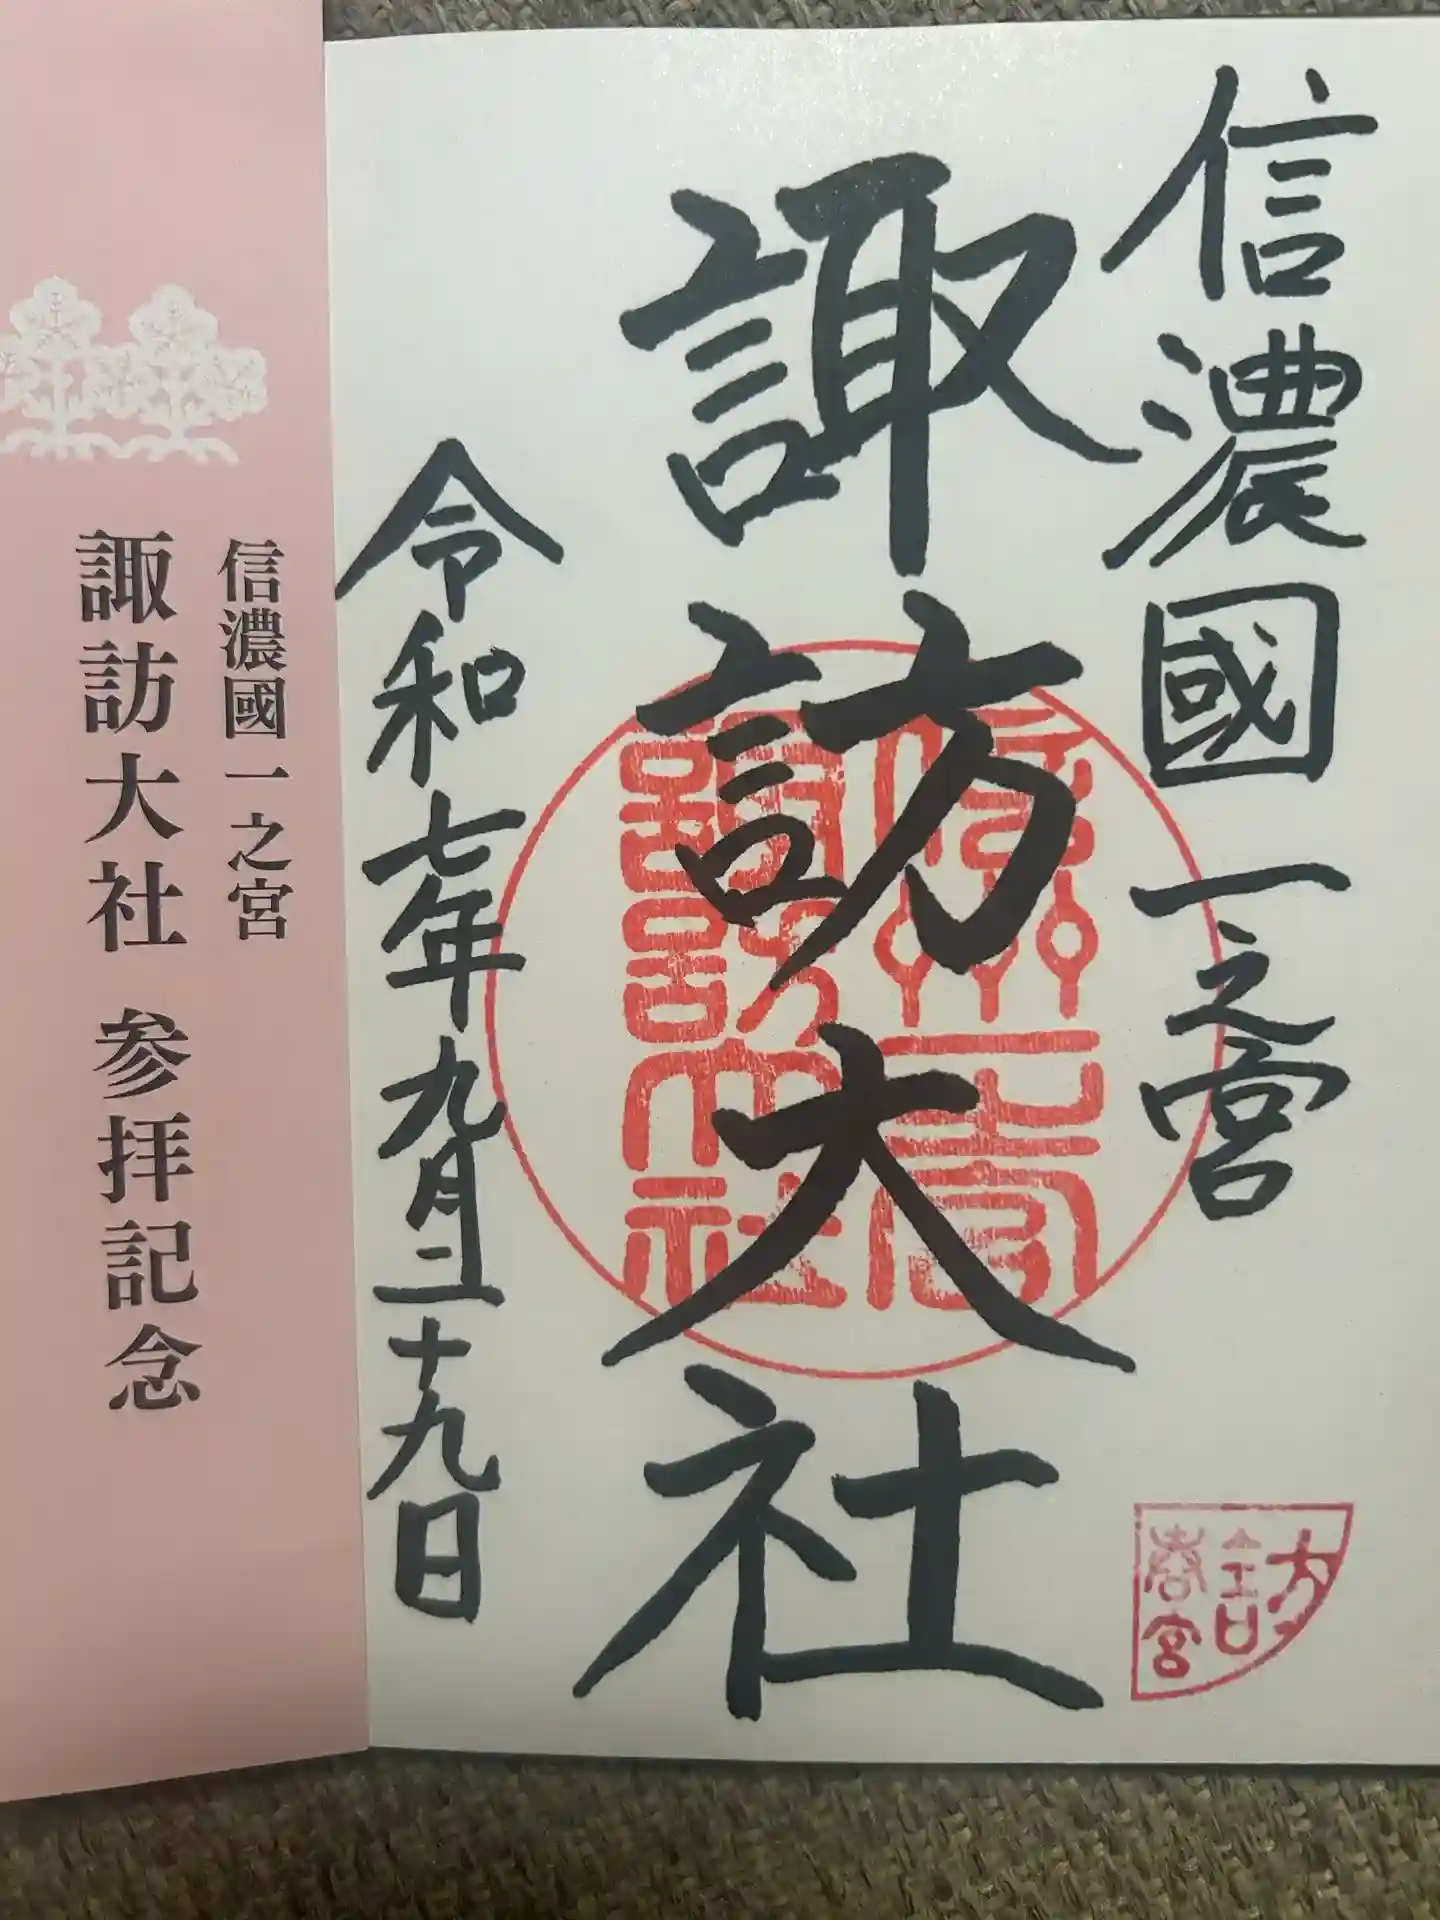 信濃國一之宮
諏訪大社
令和七年九月二十九日
信州一之宮
諏訪大社
訪
春宮
信濃國一之宮
諏訪大社 参拝記念